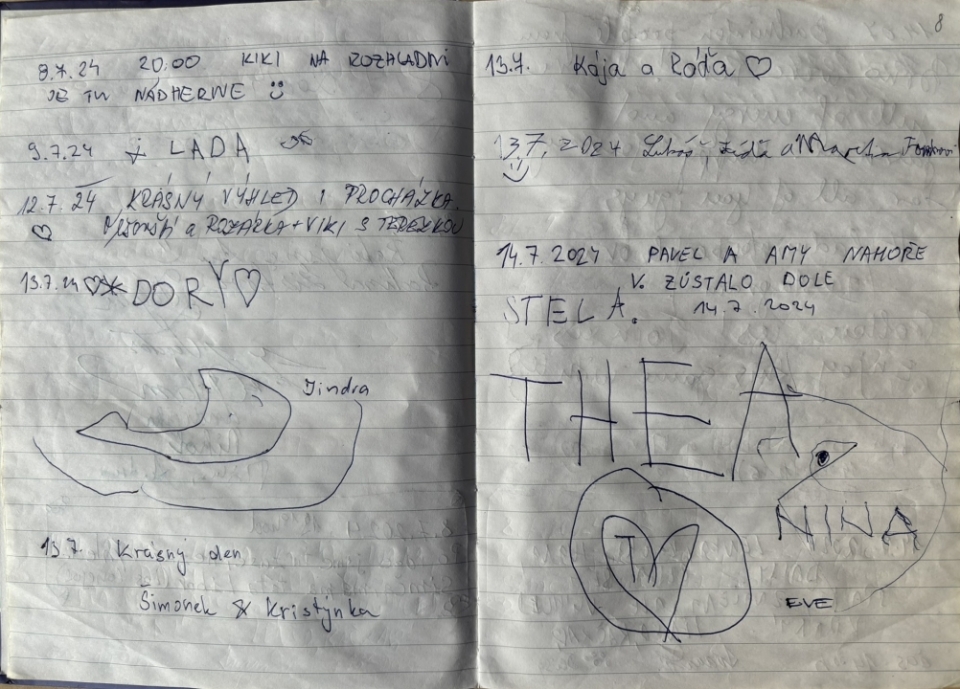 8.7.24 20.00 KIKI NA ROZHLADNI
JE TU NÁDHERNE
9.7.24 LADA
12.7.24 KRÁSNÝ VÝHLED I PROCHÁZKA.
a ROZÁRKA + VIKI S TEREZKOU
13.7.24 DORY
Jindra
13.7. Krásný den
Šimonek & Kristýnka
8
13.7. Kája a Róďa
13.7.2024 Luboš, a Martin
14.7.2024 PAVEL A AMY NAHOŘE
V. ZŮSTALO DOLE
STELA. 14.7.2024
THEA
NINA
T
EVE